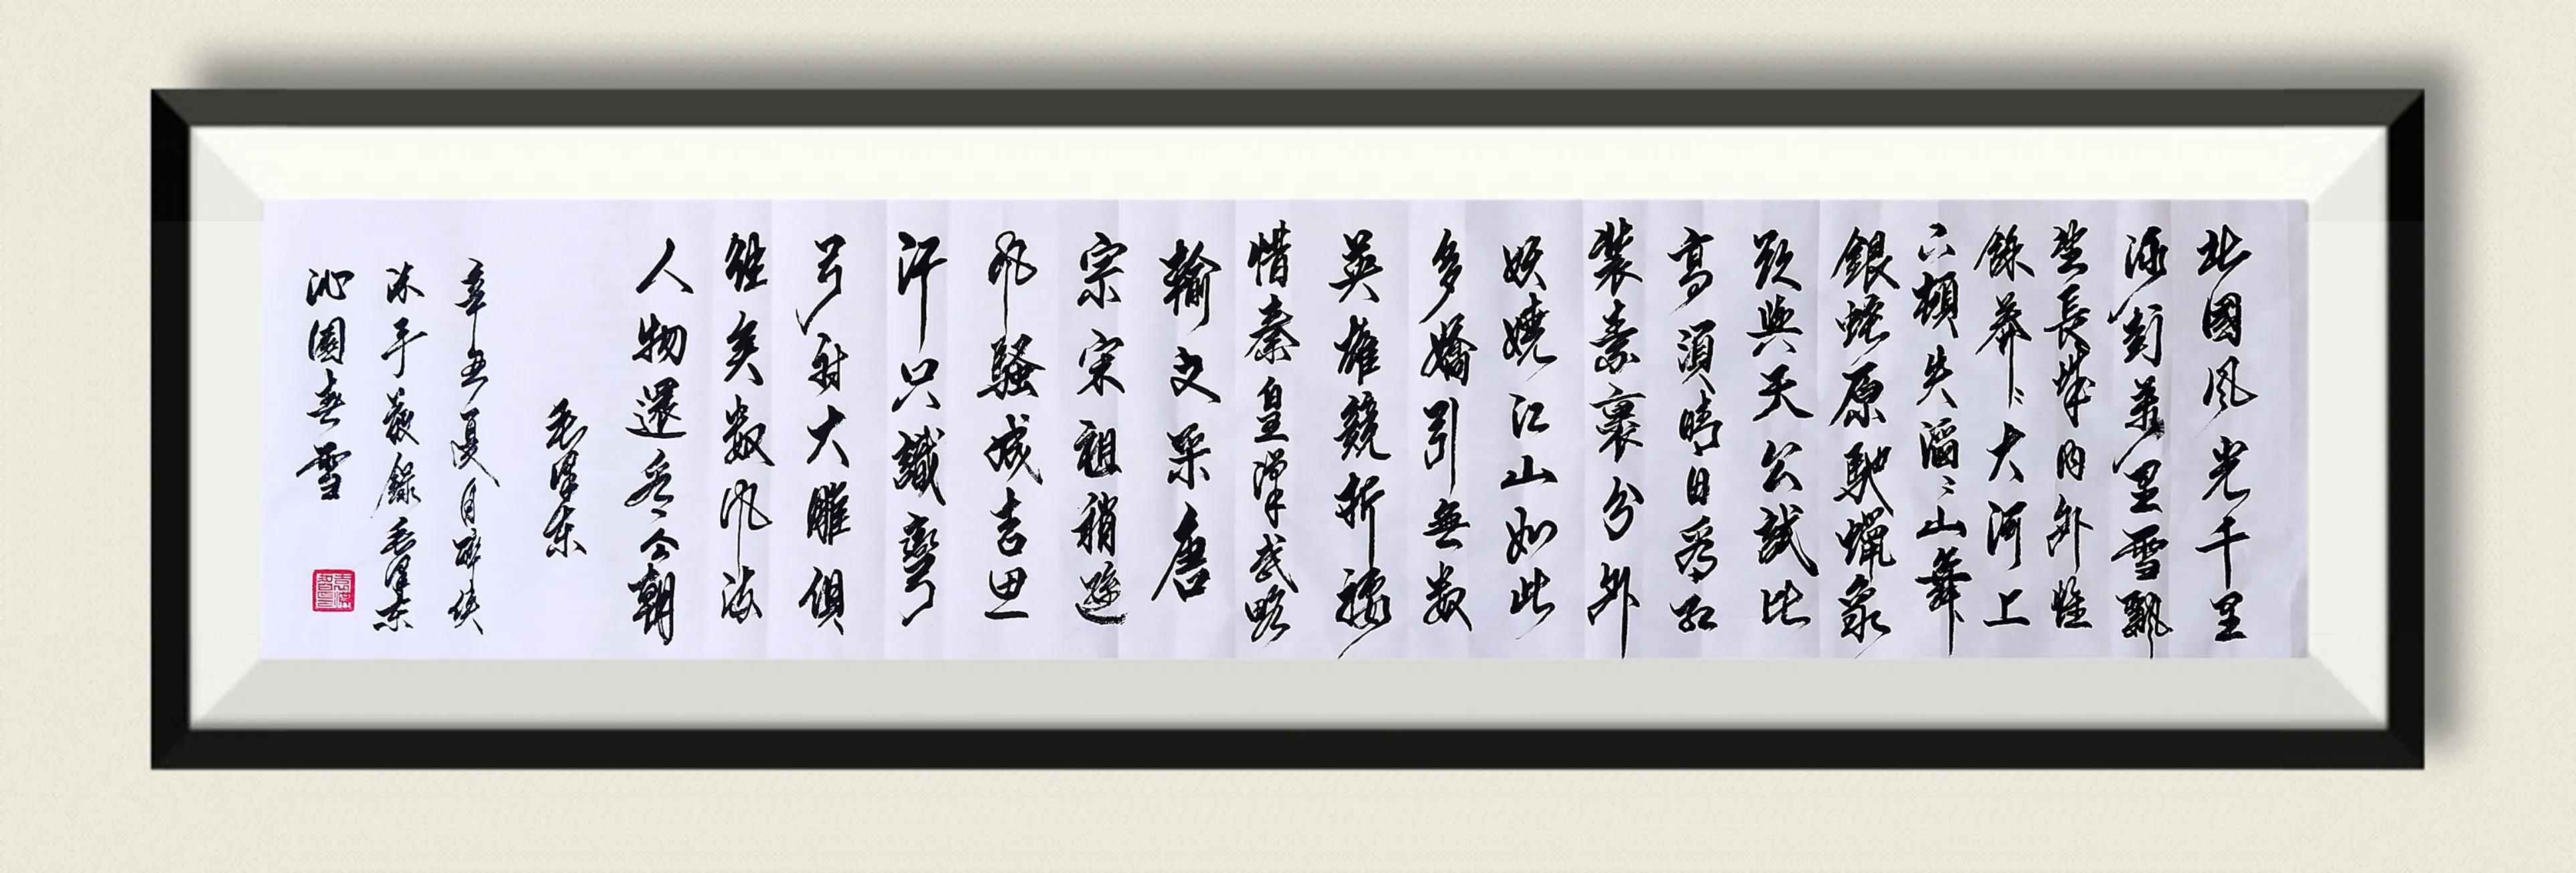 北國風光千里
冰封萬里雪飄
望長城內外惟
餘莽〻大河上
下頓失滔〻山舞
銀蛇原馳蠟象
欲與天公試比
高須晴日看紅
裝素裹分外
妖嬈江山如此
多嬌引無數
英雄競折腰
惜秦皇漢武略
輸文采唐
宗宋祖稍遜
風騷成吉思
汗只識彎
弓射大雕俱
往矣數風流
人物還看今朝
毛澤东
辛丑夏月
沐手敬錄毛澤东
沁園春雪